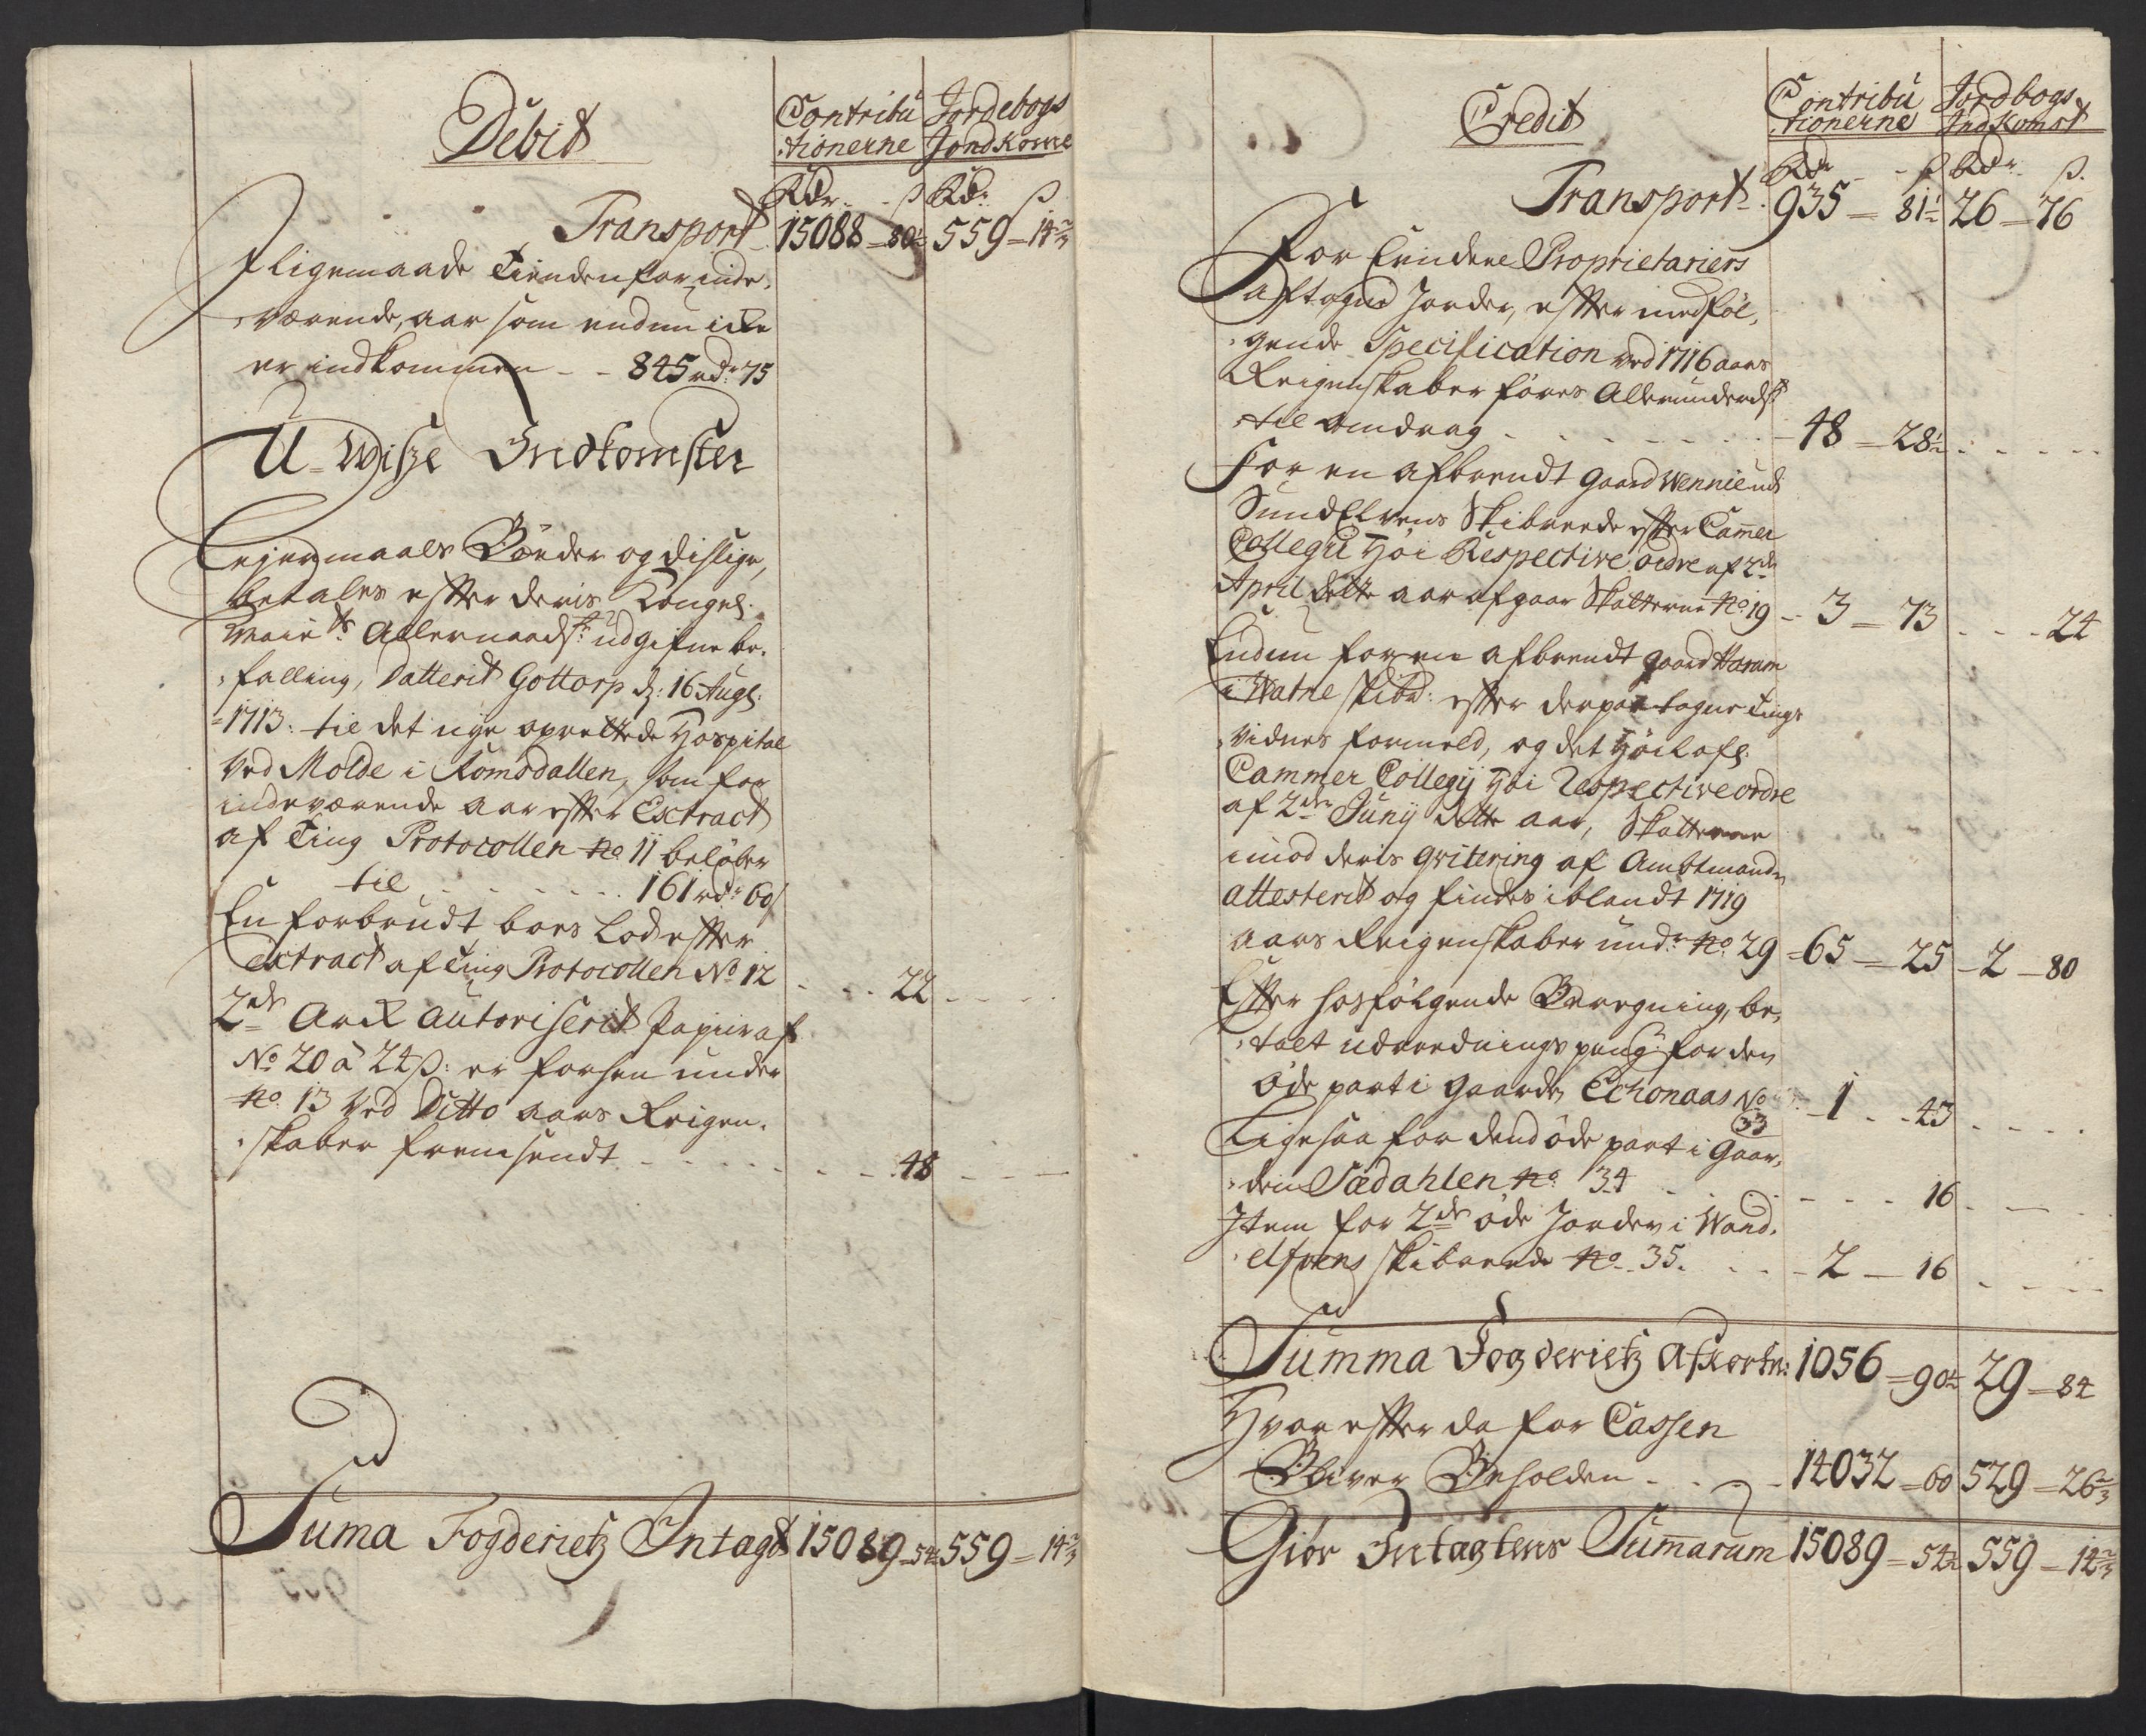 Debit
Contribu
tionerne
Jordebogs
Jondkome
Rdr - ß Rdr ß
Transport 15088 = 80½ 559 = 14⅔
Iligemaade Tienden for inde,
værende, aar som endnu icke
er indkommen - - 845 rdr 75
U-Wisse Indkomster
Lejermaals Bønder og dislige,
betales efter deris Kongel:
Mait: Allernaadst udgifne be,
falling, Datterit Gottorp d: 16 Aug:
1713: til det nye oprettede Hospital
ved Molde i Romsdallen, som for
indeværende aar efter Extract
af Ting Protocollen No 11 beløber
til - - - 161 rdr 60ß
En forbrudt bors Lod efter
Extract af Ting Protocollen No 12 - - - 22 - - -
2de Ark Autoriserit Papiir af
No 20 à 24ß: er forhen under
No 13 ved Ditto aars Reigen,
skaber fremsendt - - - 48 - - -
Suma Fogderietz Intagt 15089 = 54½ 559 = 14⅔
Credit
Contribu
tionerne
Jordbogs
Indkomst
Rdr - ß Rdr ß.
Transport 935 = 81½ 26 = 76
For Proprietariers
aftagne Jorder, efter medføl,
gende Specification ved 1716 aars
Reigenskaber føres Allerunderdst
til Vindrag - - - 48 = 28½ - - -
For en afbrendt gaard Wennie udi
Sundelvens Skibrede efter Camer
Collegii Høi Respective ordre af 2de
April dette aar afgaar Skatterne No 19 - 3 = 73 - - - 24
Endnu for en afbrendt gaard Haram
i Watne skibr: efter derpaa tagne Tings
vidnes formeld, og det Høilofl:
Cammer Collegij Høi Respective ordre
af 2den Junij dette aar, Skatterne
imod deris qvitering af Ambtmanden
attesterit og findes iblandt 1719
aars Reigenskaber undr No 29 = 65 = 25 - 2 - 80
Efter hosfølgende Beregning, be,
talt udredningspeng: for den
øde part i gaarden Echonaas No 33 - 1 - - 43 - - -
Ligesaa for dend øde part i Gaar,
den Sædahlen No 34 - - - 16 - - -
Item for 2de øde Jorder i Wand,
elfvens skibrede No 35. - - - 2 - 16 - - -
Summa Fogderietz Afkortn: 1056 = 90½ 29 = 84
Hvor efter da for Cassen
Bliver Beholden - - - 14032 = 60 529 = 26⅔
Giør Intagtens Summarum 15089 = 54½ 559 = 14⅔